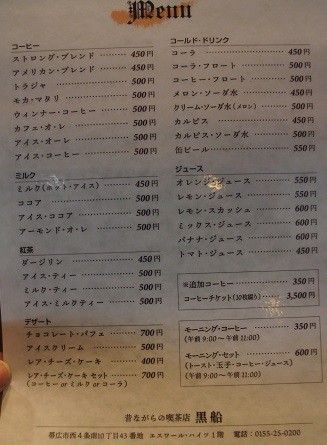 Menu
コーヒー
ストロング・ブレンド 450円
アメリカン・ブレンド 450円
トラジャ 500円
モカ・マタリ 500円
ウィンナー・コーヒー 500円
カフェ・オ・レ 500円
アイス・オーレ 500円
アイス・コーヒー 500円
ミルク
ミルク(ホット・アイス) 450円
ココア 500円
アイス・ココア 500円
アーモンド・オ・レ 500円
紅茶
ダージリン 450円
アイス・ティー 500円
ミルク・ティー 500円
アイス・ミルクティー 500円
デザート
チョコレート・パフェ 700円
アイスクリーム 500円
レア・チーズ・ケーキ 400円
レア・チーズ・ケーキセット 700円
(コーヒー or ミルク or コーラ)
コールド・ドリンク
コーラ 450円
コーラ・フロート 500円
コーヒー・フロート 500円
メロン・ソーダ水 450円
クリーム・ソーダ水(メロン) 500円
カルピス 450円
カルピス・ソーダ水 500円
缶ビール 550円
ジュース
オレンジ・ジュース 550円
レモン・ジュース 550円
レモン・スカッシュ 600円
ミックス・ジュース 600円
バナナ・ジュース 600円
トマト・ジュース 450円
※追加コーヒー 350円
コーヒーチケット(10枚綴り) 3,500円
モーニング・コーヒー 350円
(午前 9:00 〜午前 11:00)
モーニング・セット 600円
(トースト・玉子・コーヒー・ジュース)
(午前 9:00 〜午前 11:00)
昔ながらの喫茶店 黒船
帯広市西4条南10丁目43番地 エスワール・ハイツ1階 電話:0155-25-0200